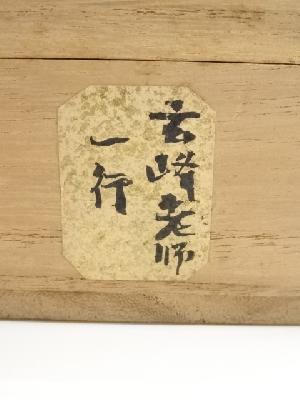 玄峰老師
一行